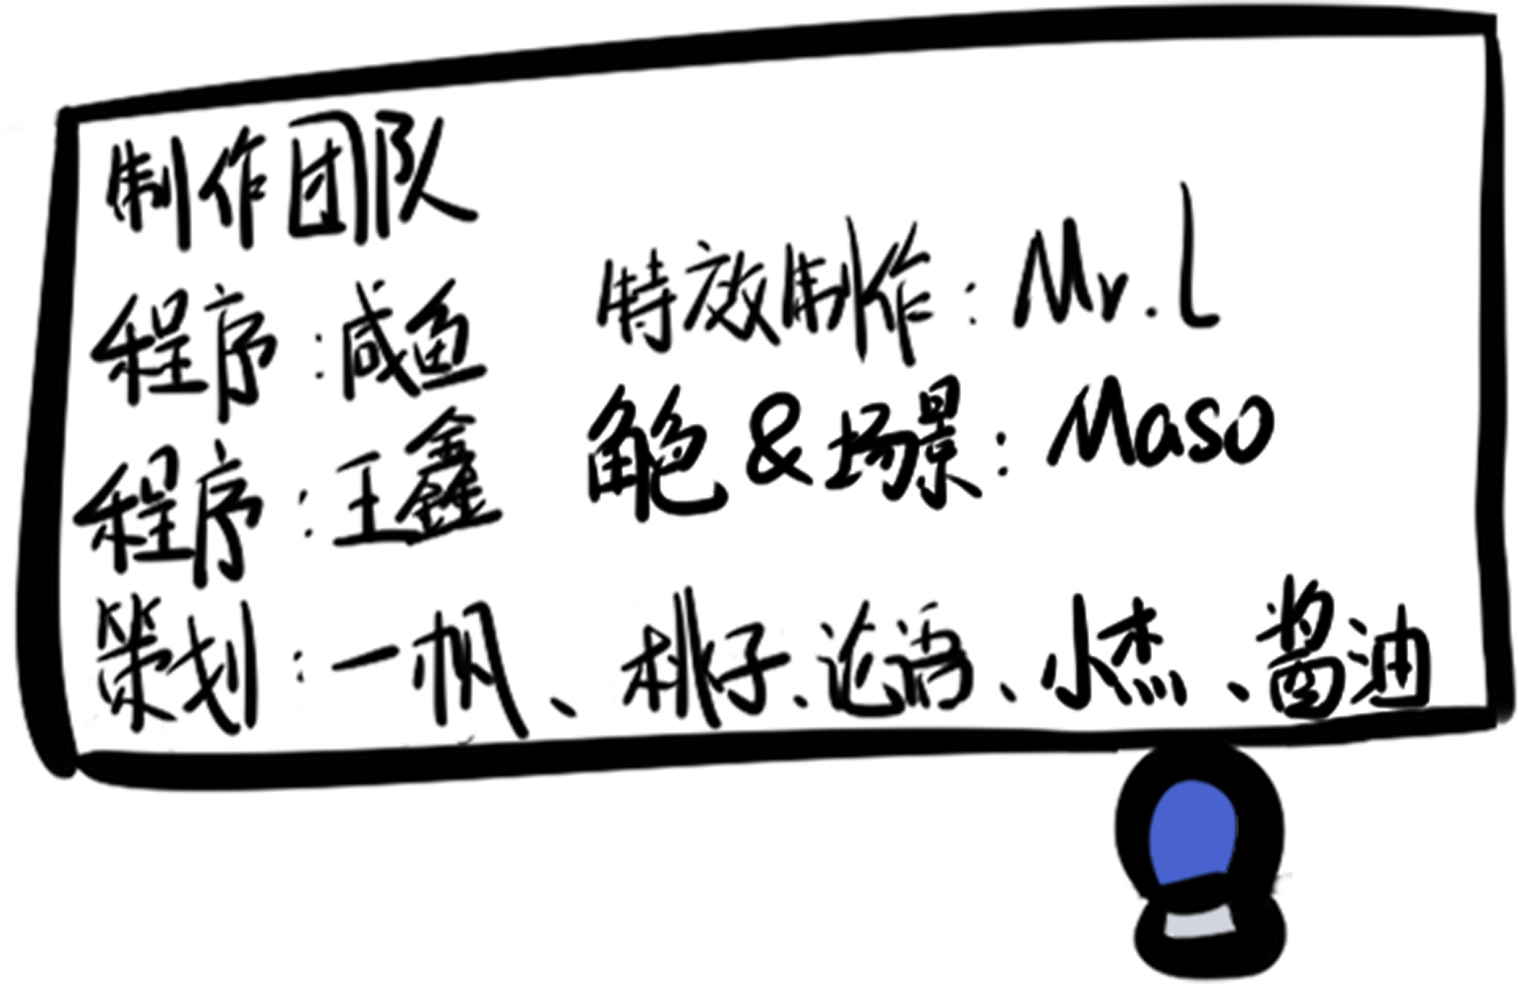 制作团队
程序:咸鱼
程序:王鑫
特效制作:Mr.L
角色&场景:Maso
策划:一帆、桃子、论语、小杰、酱油